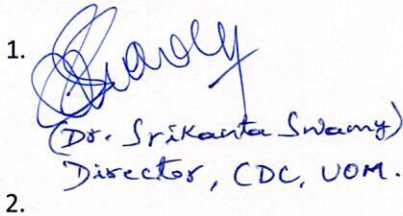 1.
(Dr. Srikanta Swamy)
Director, CDC, UOM.
2.